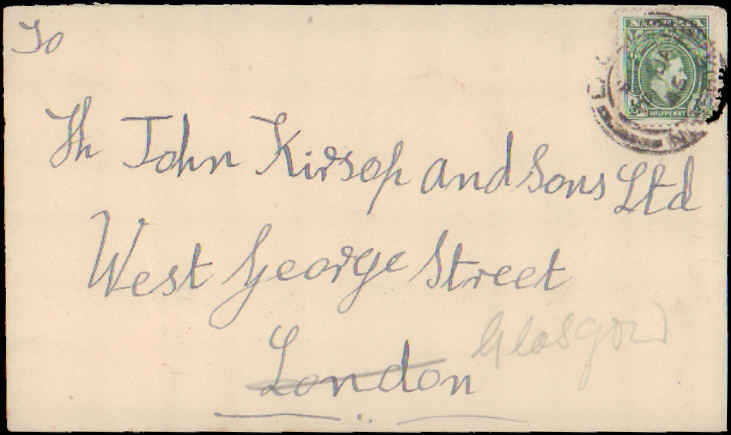 To
Th John Kirsop and Sons Ltd
West George Street
London Glasgow
HALFPENNY